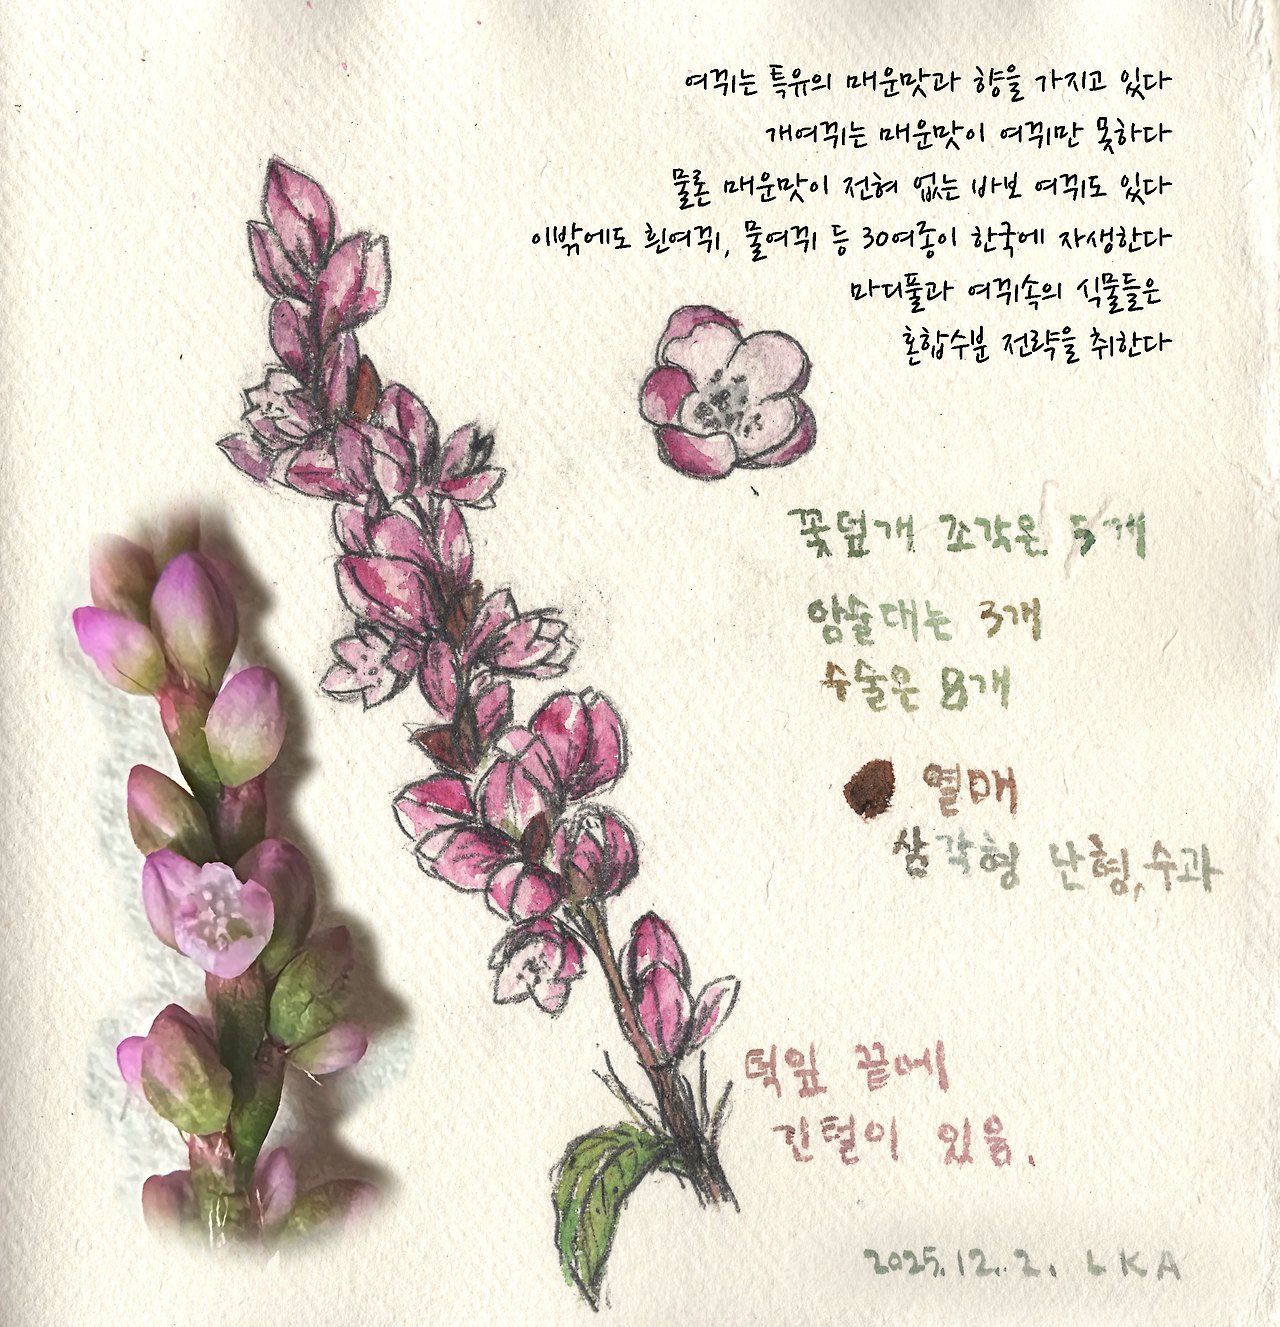 여뀌는 특유의 매운맛과 향을 가지고 있다
개여뀌는 매운맛이 여뀌만 못하다
물론 매운맛이 전혀 없는 바보 여뀌도 있다
이밖에도 흰여뀌, 물여뀌 등 30여종이 한국에 자생한다
마디풀과 여뀌속의 식물들은
혼합수분 전략을 취한다
꽃덮개 조각은 5개
암술대는 3개
수술은 8개
열매
삼각형 난형, 수과
턱잎 끝에
긴털이 있음.
2025.12.2. LKA